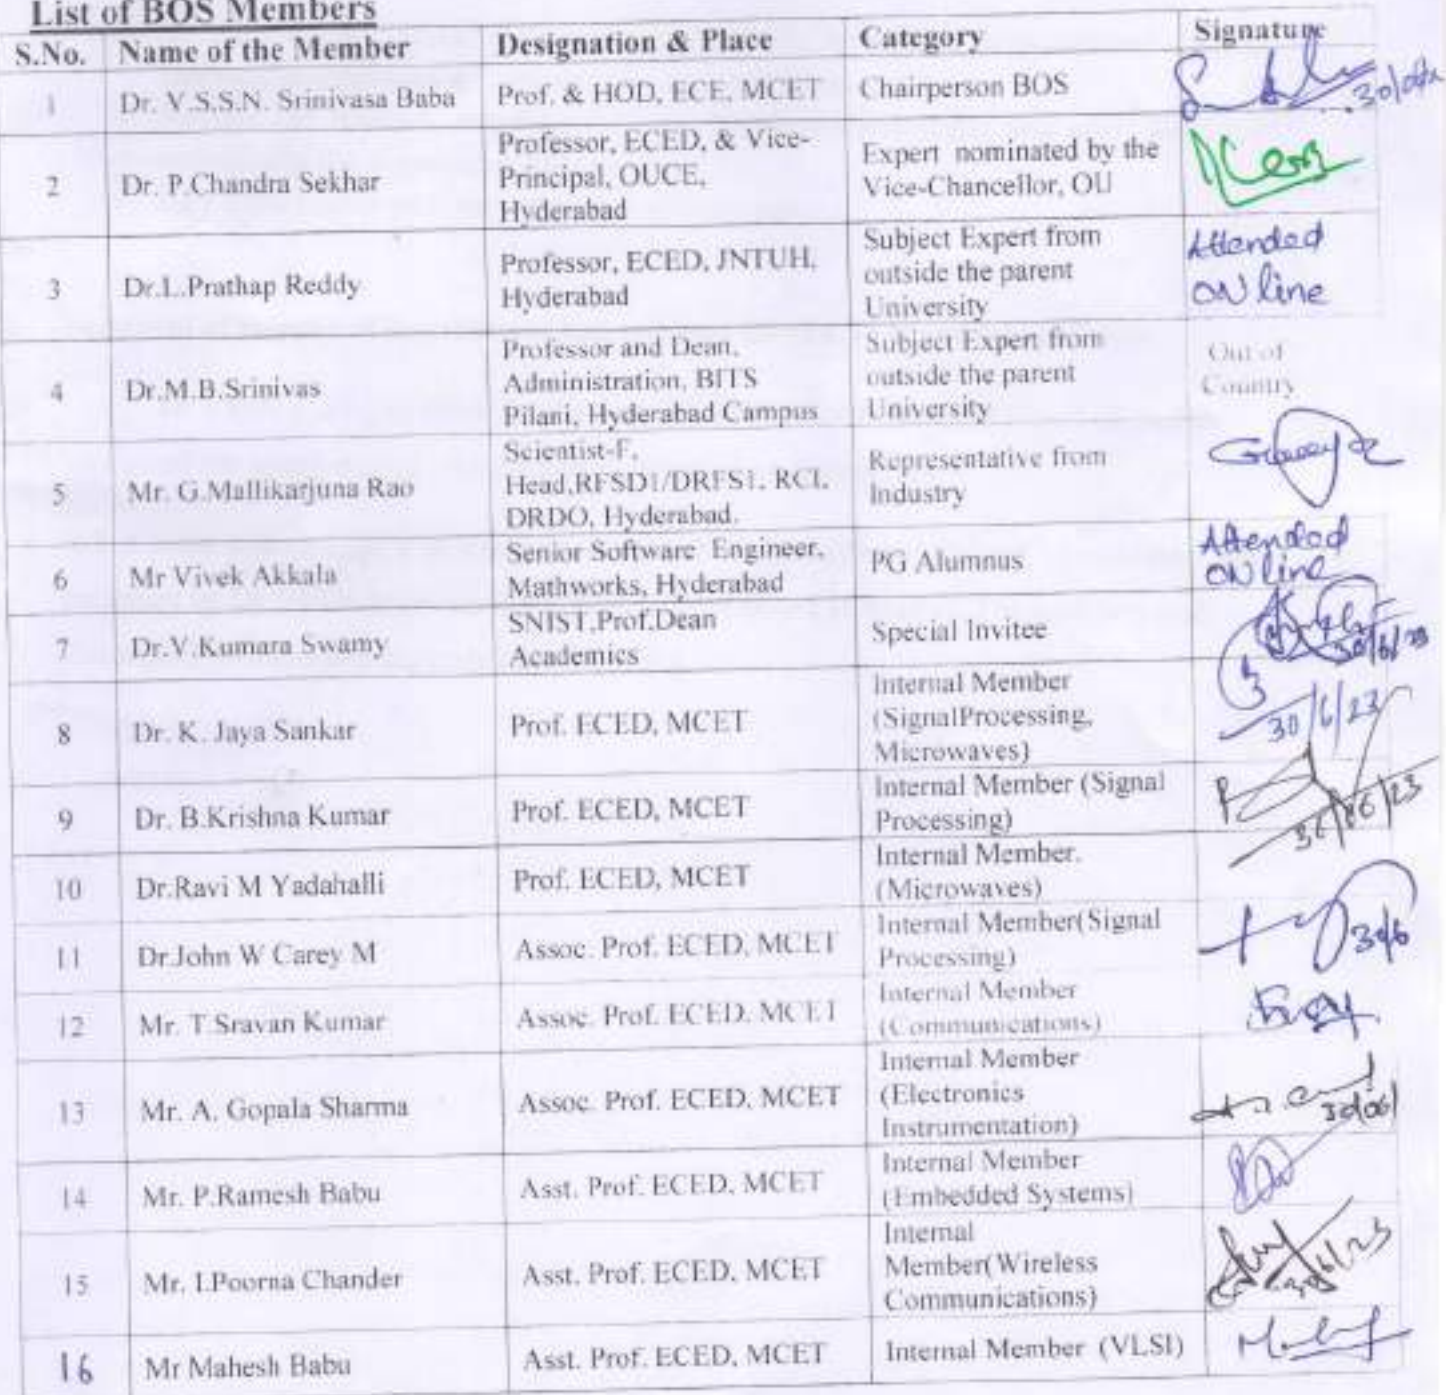 List of BOS Members
S.No. Name of the Member Designation & Place Category Signature
1 Dr. V.S.S.N. Srinivasa Baba Prof. & HOD, ECE, MCET Chairperson BOS
2 Dr. P.Chandra Sekhar Professor, ECED, & Vice-
Principal, OUCE,
Hyderabad
Expert nominated by the
Vice-Chancellor, OU
3 Dr.L.Prathap Reddy Professor, ECED, JNTUH,
Hyderabad
Subject Expert from
outside the parent
University
Attended
ON line
4 Dr.M.B.Srinivas Professor and Dean,
Administration, BITS
Pilani, Hyderabad Campus
Subject Expert from
outside the parent
University
Out of
Country
5 Mr. G.Mallikarjuna Rao Scientist-F,
Head,RFSD1/DRFS1, RCI,
DRDO, Hyderabad.
Representative from
Industry
6 Mr Vivek Akkala Senior Software Engineer,
Mathworks, Hyderabad
PG Alumnus
Attended
ON line
7 Dr.V.Kumara Swamy SNIST,Prof.Dean
Academics
Special Invitee
30/6/23
8 Dr. K. Jaya Sankar Prof. ECED, MCET Internal Member
(SignalProcessing,
Microwaves)
30/6/23
9 Dr. B.Krishna Kumar Prof. ECED, MCET Internal Member (Signal
Processing)
30/06/23
10 Dr.Ravi M Yadahalli Prof. ECED, MCET Internal Member.
(Microwaves)
11 Dr.John W Carey M Assoc. Prof. ECED, MCET Internal Member(Signal
Processing)
30/6
12 Mr. T Sravan Kumar Assoc. Prof. ECED, MCET Internal Member
(Communications)
13 Mr. A. Gopala Sharma Assoc. Prof. ECED, MCET Internal Member
(Electronics
Instrumentation)
30/06/
14 Mr. P.Ramesh Babu Asst. Prof. ECED, MCET Internal Member
(Embedded Systems)
15 Mr. I.Poorna Chander Asst. Prof. ECED, MCET Internal
Member(Wireless
Communications)
30/6/23
16 Mr Mahesh Babu Asst. Prof. ECED, MCET Internal Member (VLSI)